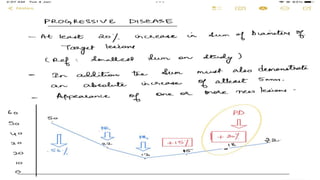 2:07 AM Tue 4 Jan
Notes
PROGRESSIVE DISEASE
- At least 20% increase in sum of Diameters of
Target lesions
(Ref: Smallest Sum on study)
- In addition the Sum must also demonstrate
an absolute increase of atleast 5mm.
- Appearance of one or more new lesions.
60
50
40
30
20
10
0
50
PR
-56%
22
PR
12
+15%
15
PD
+20%
18
22